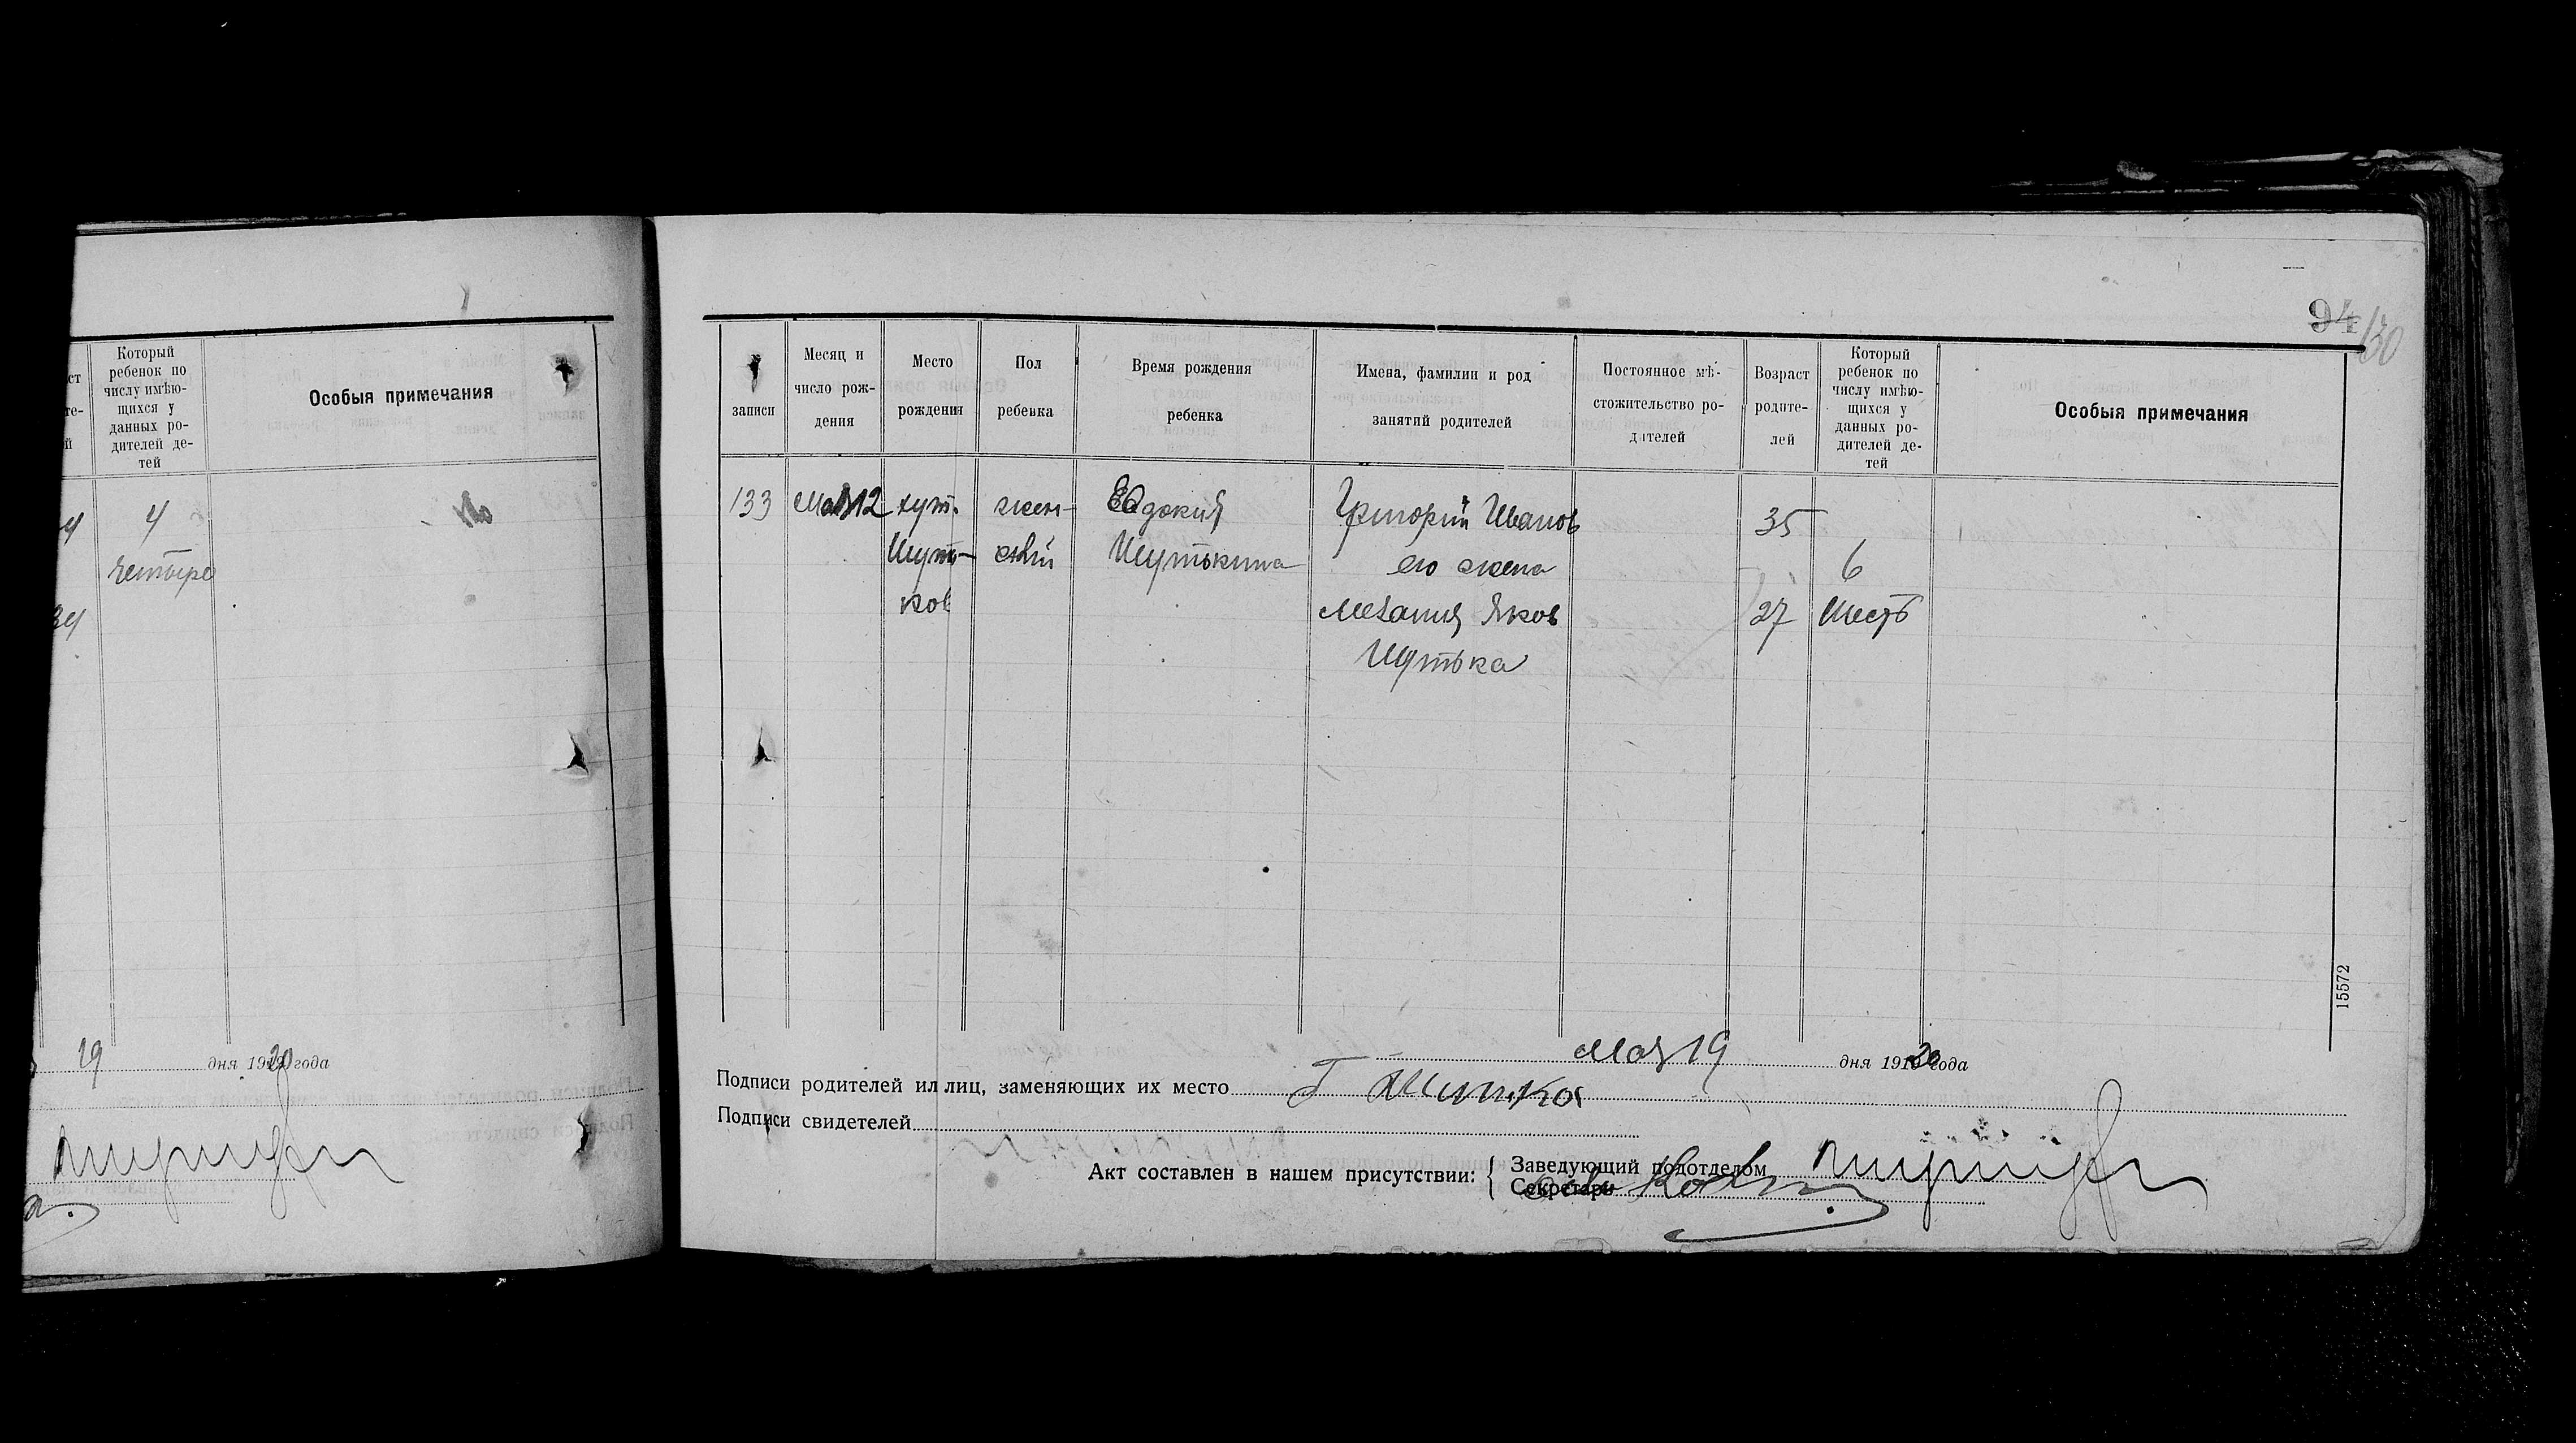 Который
ребенок по
числу имѣю-
щихся у
данных ро-
дителей де-
тей
Особыя примечания
4
четыре
34
29
дня 1920 года
94
130
записи
Месяц и
число рож-
дения
Место
рождения
Пол
ребенка
Время рождения
ребенка
Имена, фамилии и род
занятий родителей
Постоянное мѣ-
стожительство ро-
дителей
Возраст
родите-
лей
Который
ребенок по
числу имѣю-
щихся у
данных ро-
дителей де-
тей
Особыя примечания
133 Мая 12 хут. жен- Евдокия Григорий Иванов 35
Шуть- ский Шутькина его жена 6
ков Мелания Яков 27 Шесть
Шутька
15572
Мая 19 дня 1920 года
Подписи родителей ил лиц, заменяющих их место Г
Подписи свидетелей
Акт составлен в нашем присутствии:
Заведующий подотделом
Секретарь